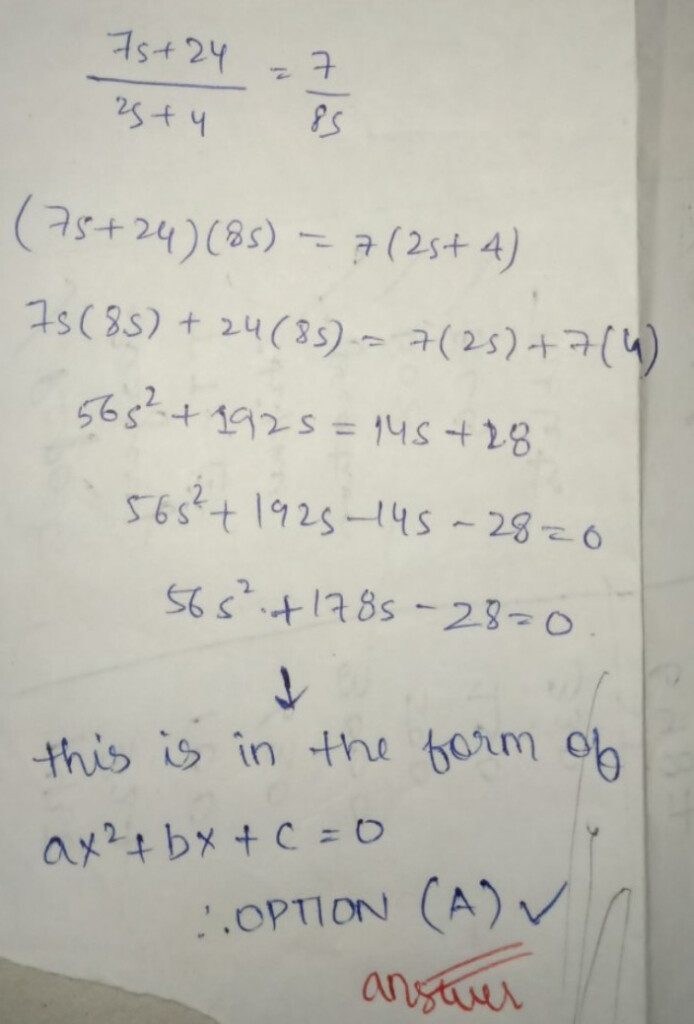 7s+24 = 7
2s+4 8s
(7s+24)(8s) = 7(2s+4)
7s(8s) + 24(8s) = 7(2s)+7(4)
56s²+192s = 14s+28
56s²+192s-14s-28=0
56s²+178s-28=0
↓
this is in the form of
ax²+bx+c=0
∴OPTION (A) ✓
answer